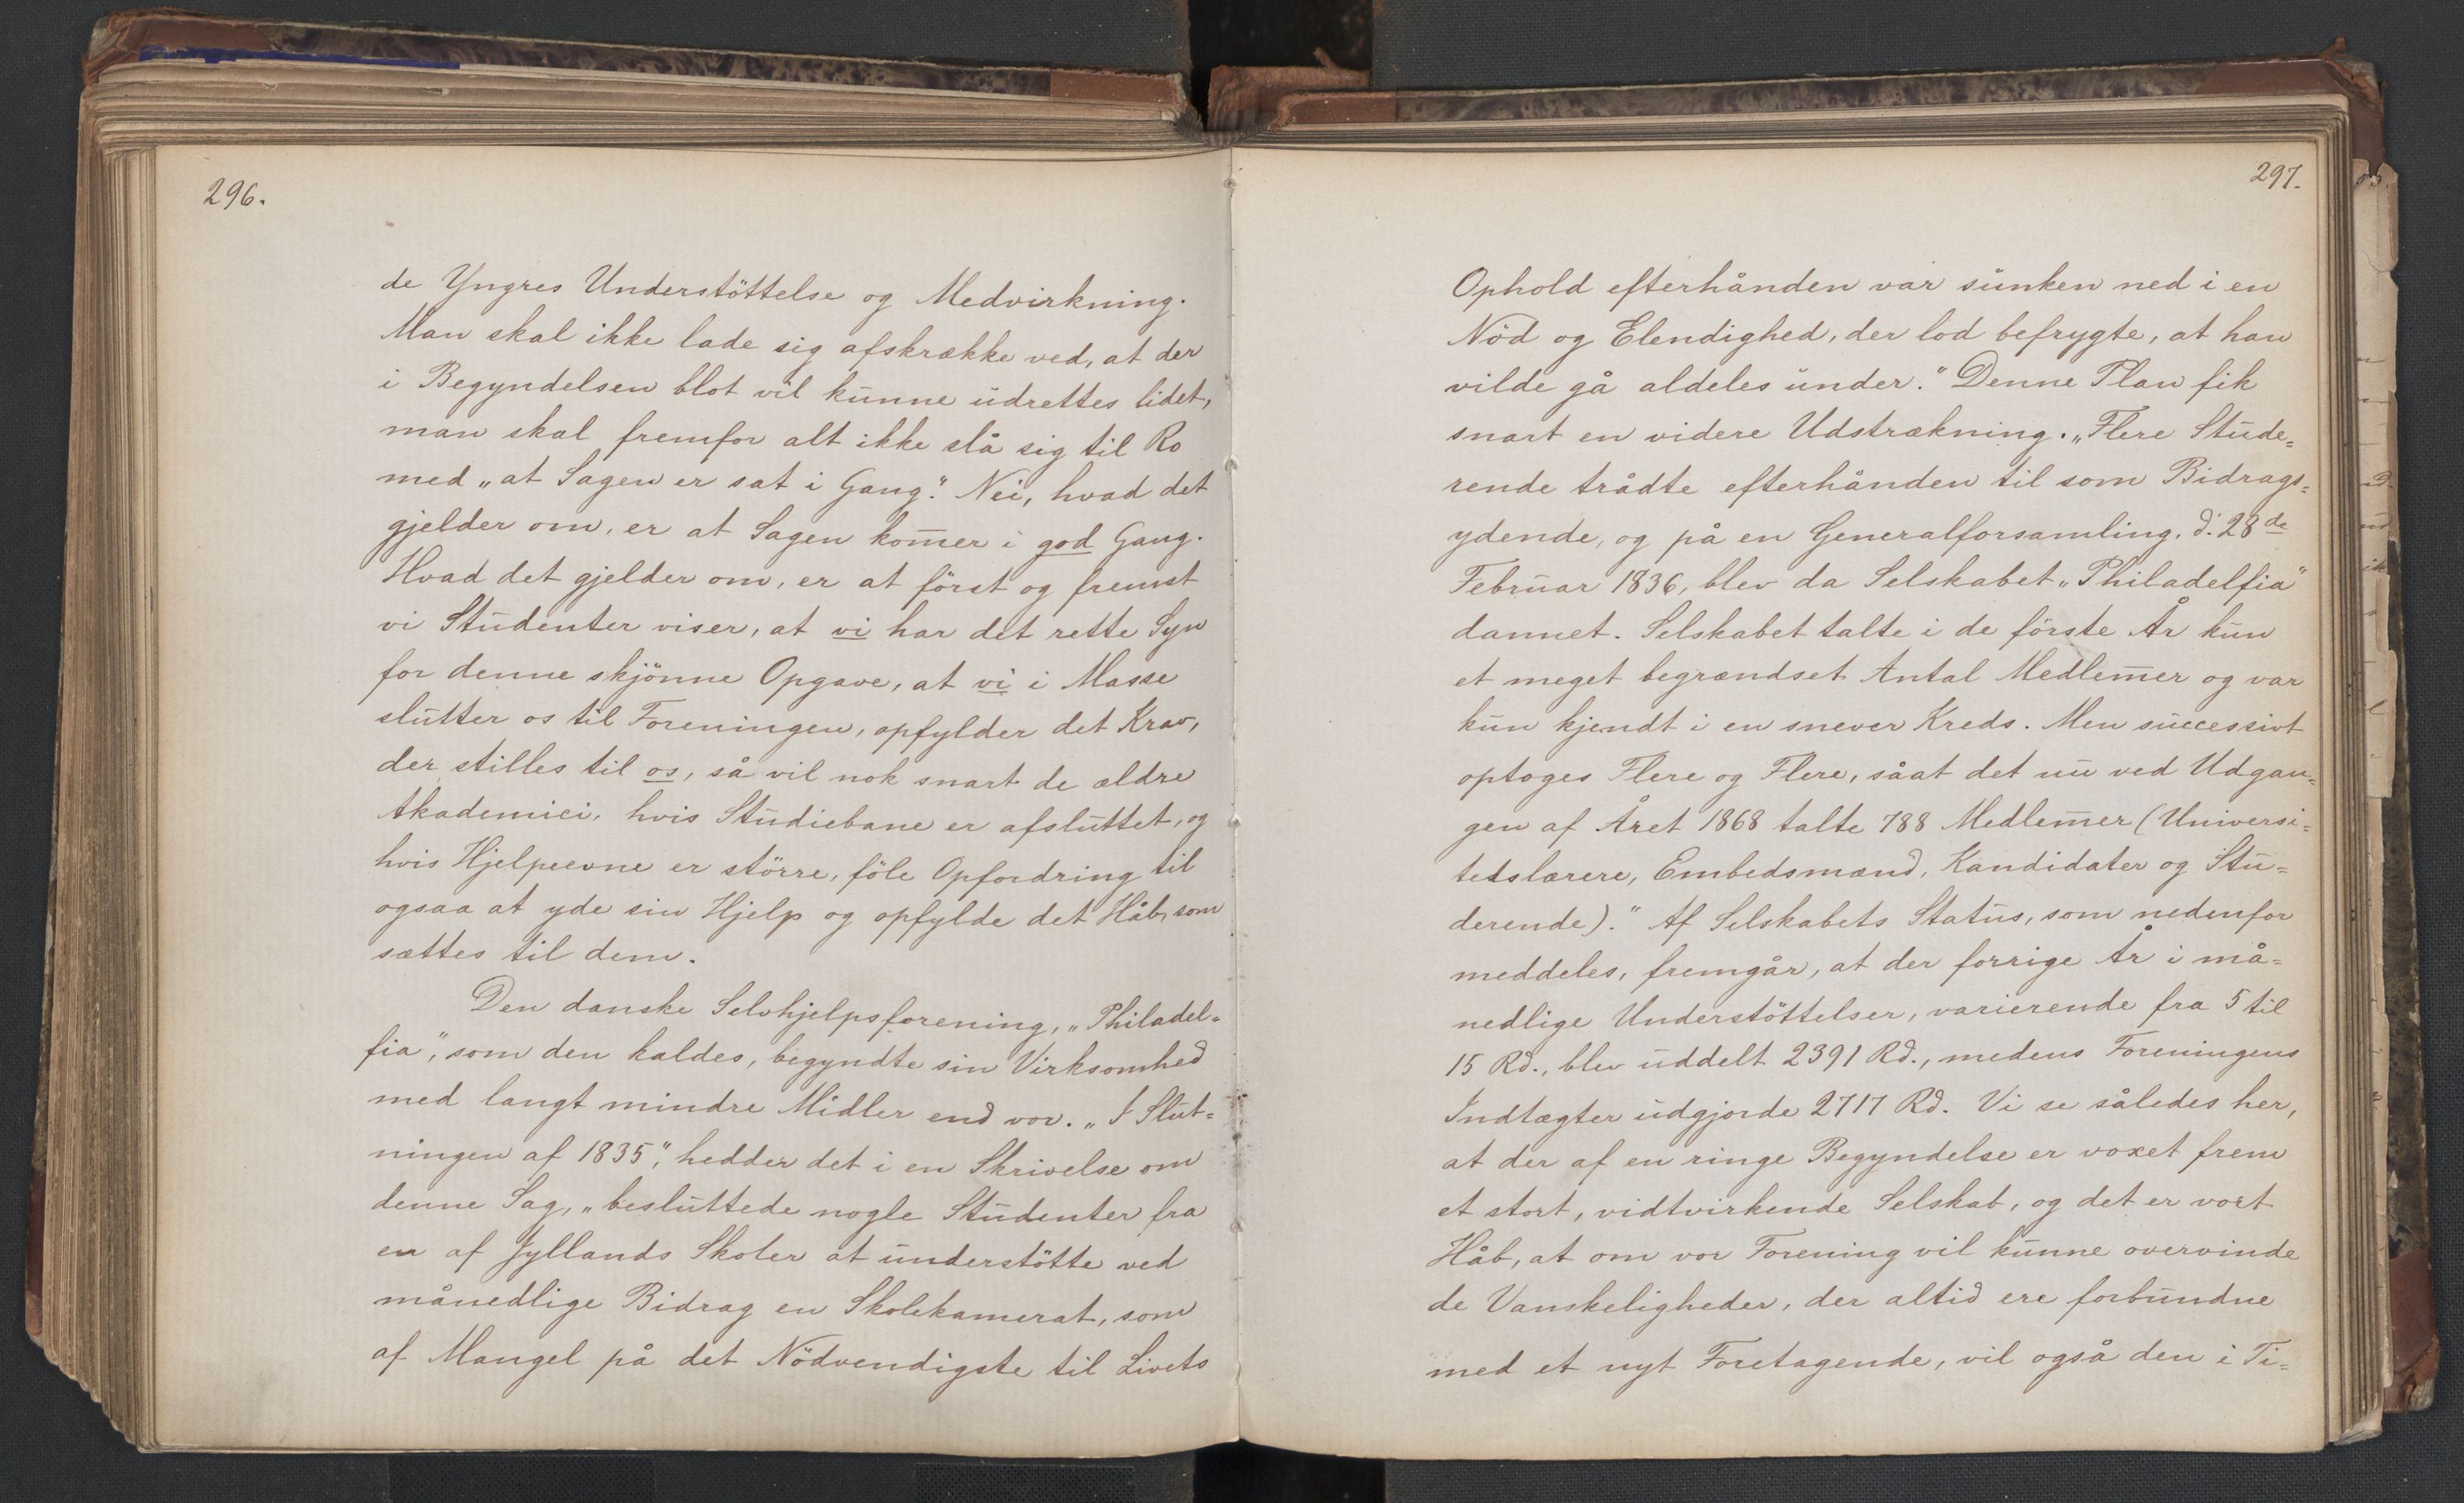 296.
de Yngres Understöttelse og Medvirkning.
Man skal ikke lade sig afskrække ved, at der
i Begyndelsen blot vil kunne udrettes lidet,
man skal fremfor alt ikke slå sig til Ro
med „at Sagen er sat i Gang." Nei, hvad det
gjelder om, er at Sagen kom̅er i god Gang.
Hvad det gjelder om, er at först og fremst
vi Studenter viser, at vi har det rette Syn
for denne skjönne Opgave, at vi i Masse
slutter os til Foreningen, opfylder det Krav,
der stilles til os, så vil nok snart de ældre
Akademici, hvis Studiebane er afsluttet, og
hvis Hjelpeevne er större, föle Opfordring til
ogsaa at yde sin Hjelp og opfylde det Håb, som
sættes til dem.
Den danske Selvhjelpsforening, „Philadel=
fia", som den kaldes, begyndte sin Virksomhed
med langt mindre Midler end vor. „I Slut=
ningen af 1835", hedder det i en Skrivelse om
denne Sag, „besluttede nogle Studenter fra
en af Jyllands Skoler at understötte ved
månedlige Bidrag en Skolekamerat, som
af Mangel på det Nödvendigste til Livets
297.
Ophold efterhånden var sunken ned i en
Nöd og Elendighed, der lod befrygte, at han
vilde gå aldeles under." Denne Plan fik
snart en videre Udstrækning. „Flere Stude=
rende trådte efterhånden til som Bidrags=
ydende, og på en Generalforsamling, d. 28de
Februar 1836, blev da Selskabet „Philadelfia"
dannet. Selskabet talte i de förste År kun
et meget begrændset Antal Medlem̅er og var
kun kjendt i en snever Kreds. Men successivt
optoges Flere og Flere, såat det nu ved Udgan=
gen af Året 1868 talte 788 Medlem̅er (Universi=
tetslærere, Embedsmænd, Kandidater og Stu=
derende)." Af Selskabets Status, som nedenfor
meddeles, fremgår, at der forrige År i må=
nedlige Understöttelser, varierende fra 5 til
15 Rd., blev uddelt 2391 Rd., medens Foreningens
Indtægter udgjorde 2717 Rd. Vi se således her,
at der af en ringe Begyndelse er voxet frem
et stort, vidtvirkende Selskab, og det er vort
Håb, at om vor Forening vil kunne overvinde
de Vanskeligheder, der altid ere forbundne
med et nyt Foretagende, vil også den i Ti=